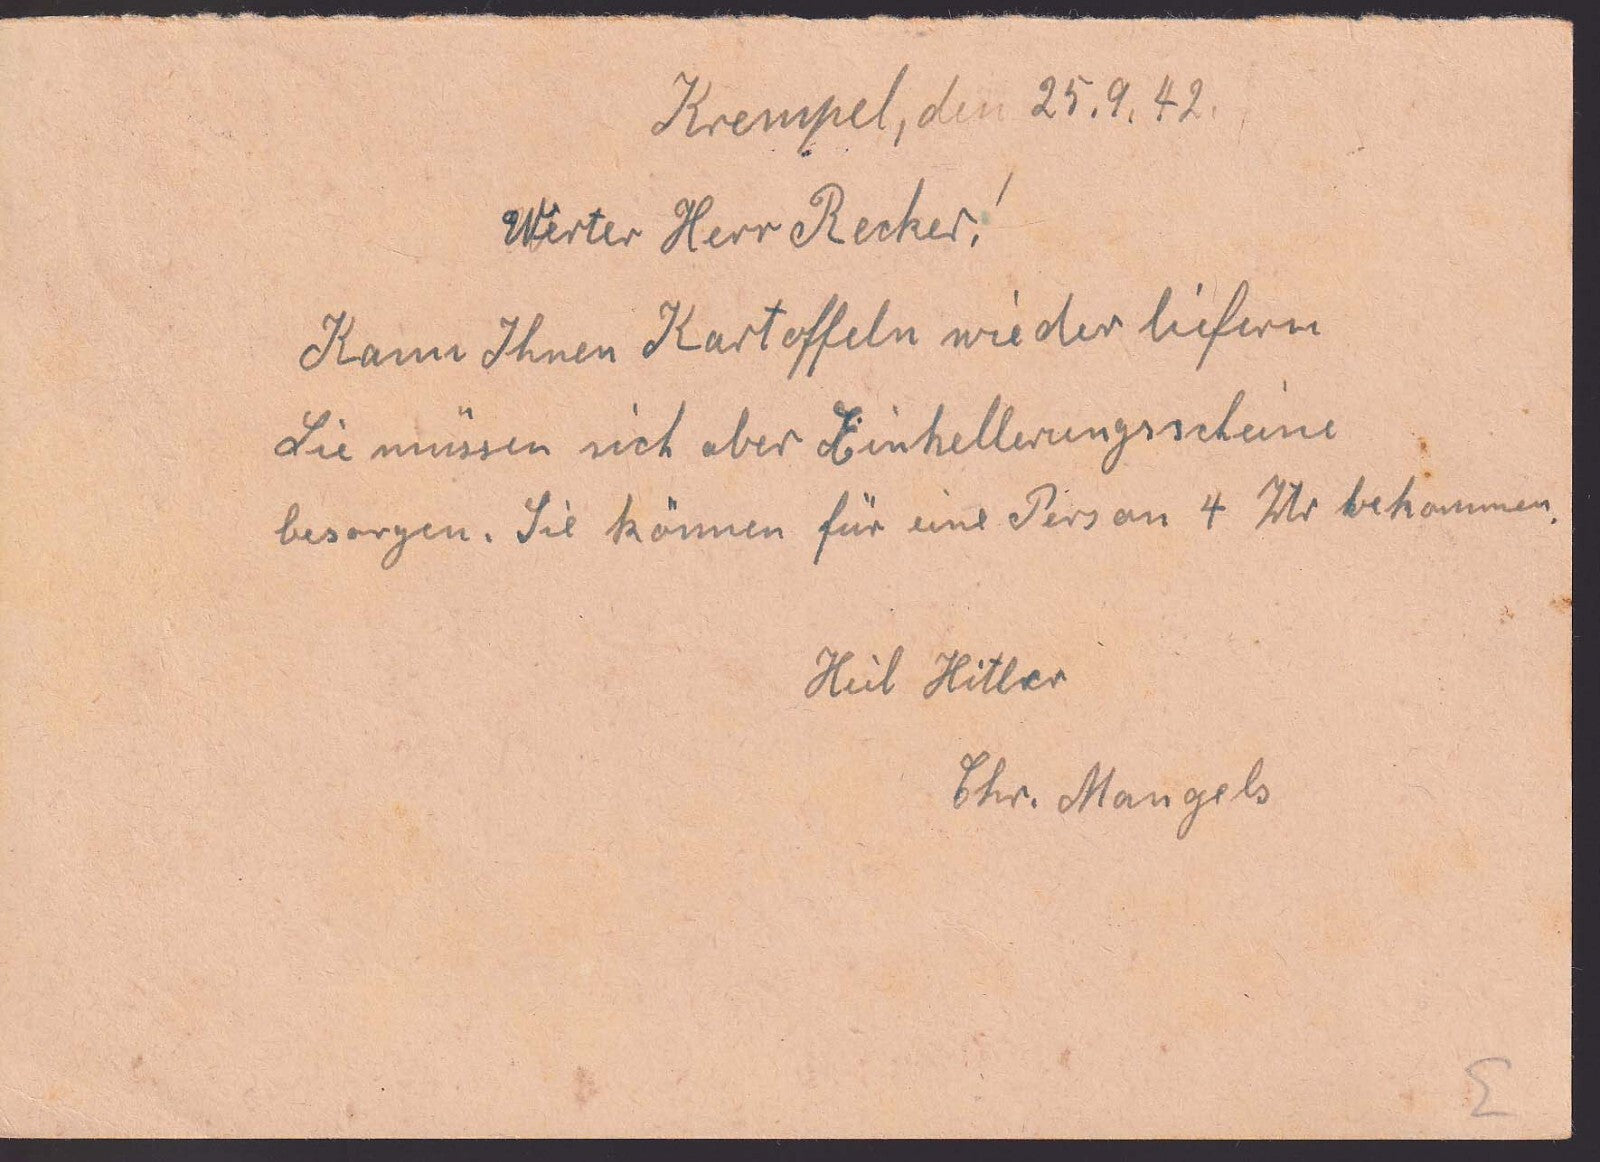 Krempel, den 25.9.42.
Werter Herr Recker!
Kann Ihnen Kartoffeln wieder liefern
Sie müssen sich aber Einkellerungsscheine
besorgen. Sie können für eine Person 4 Ztr bekommen.
Heil Hitler
Chr. Mangels